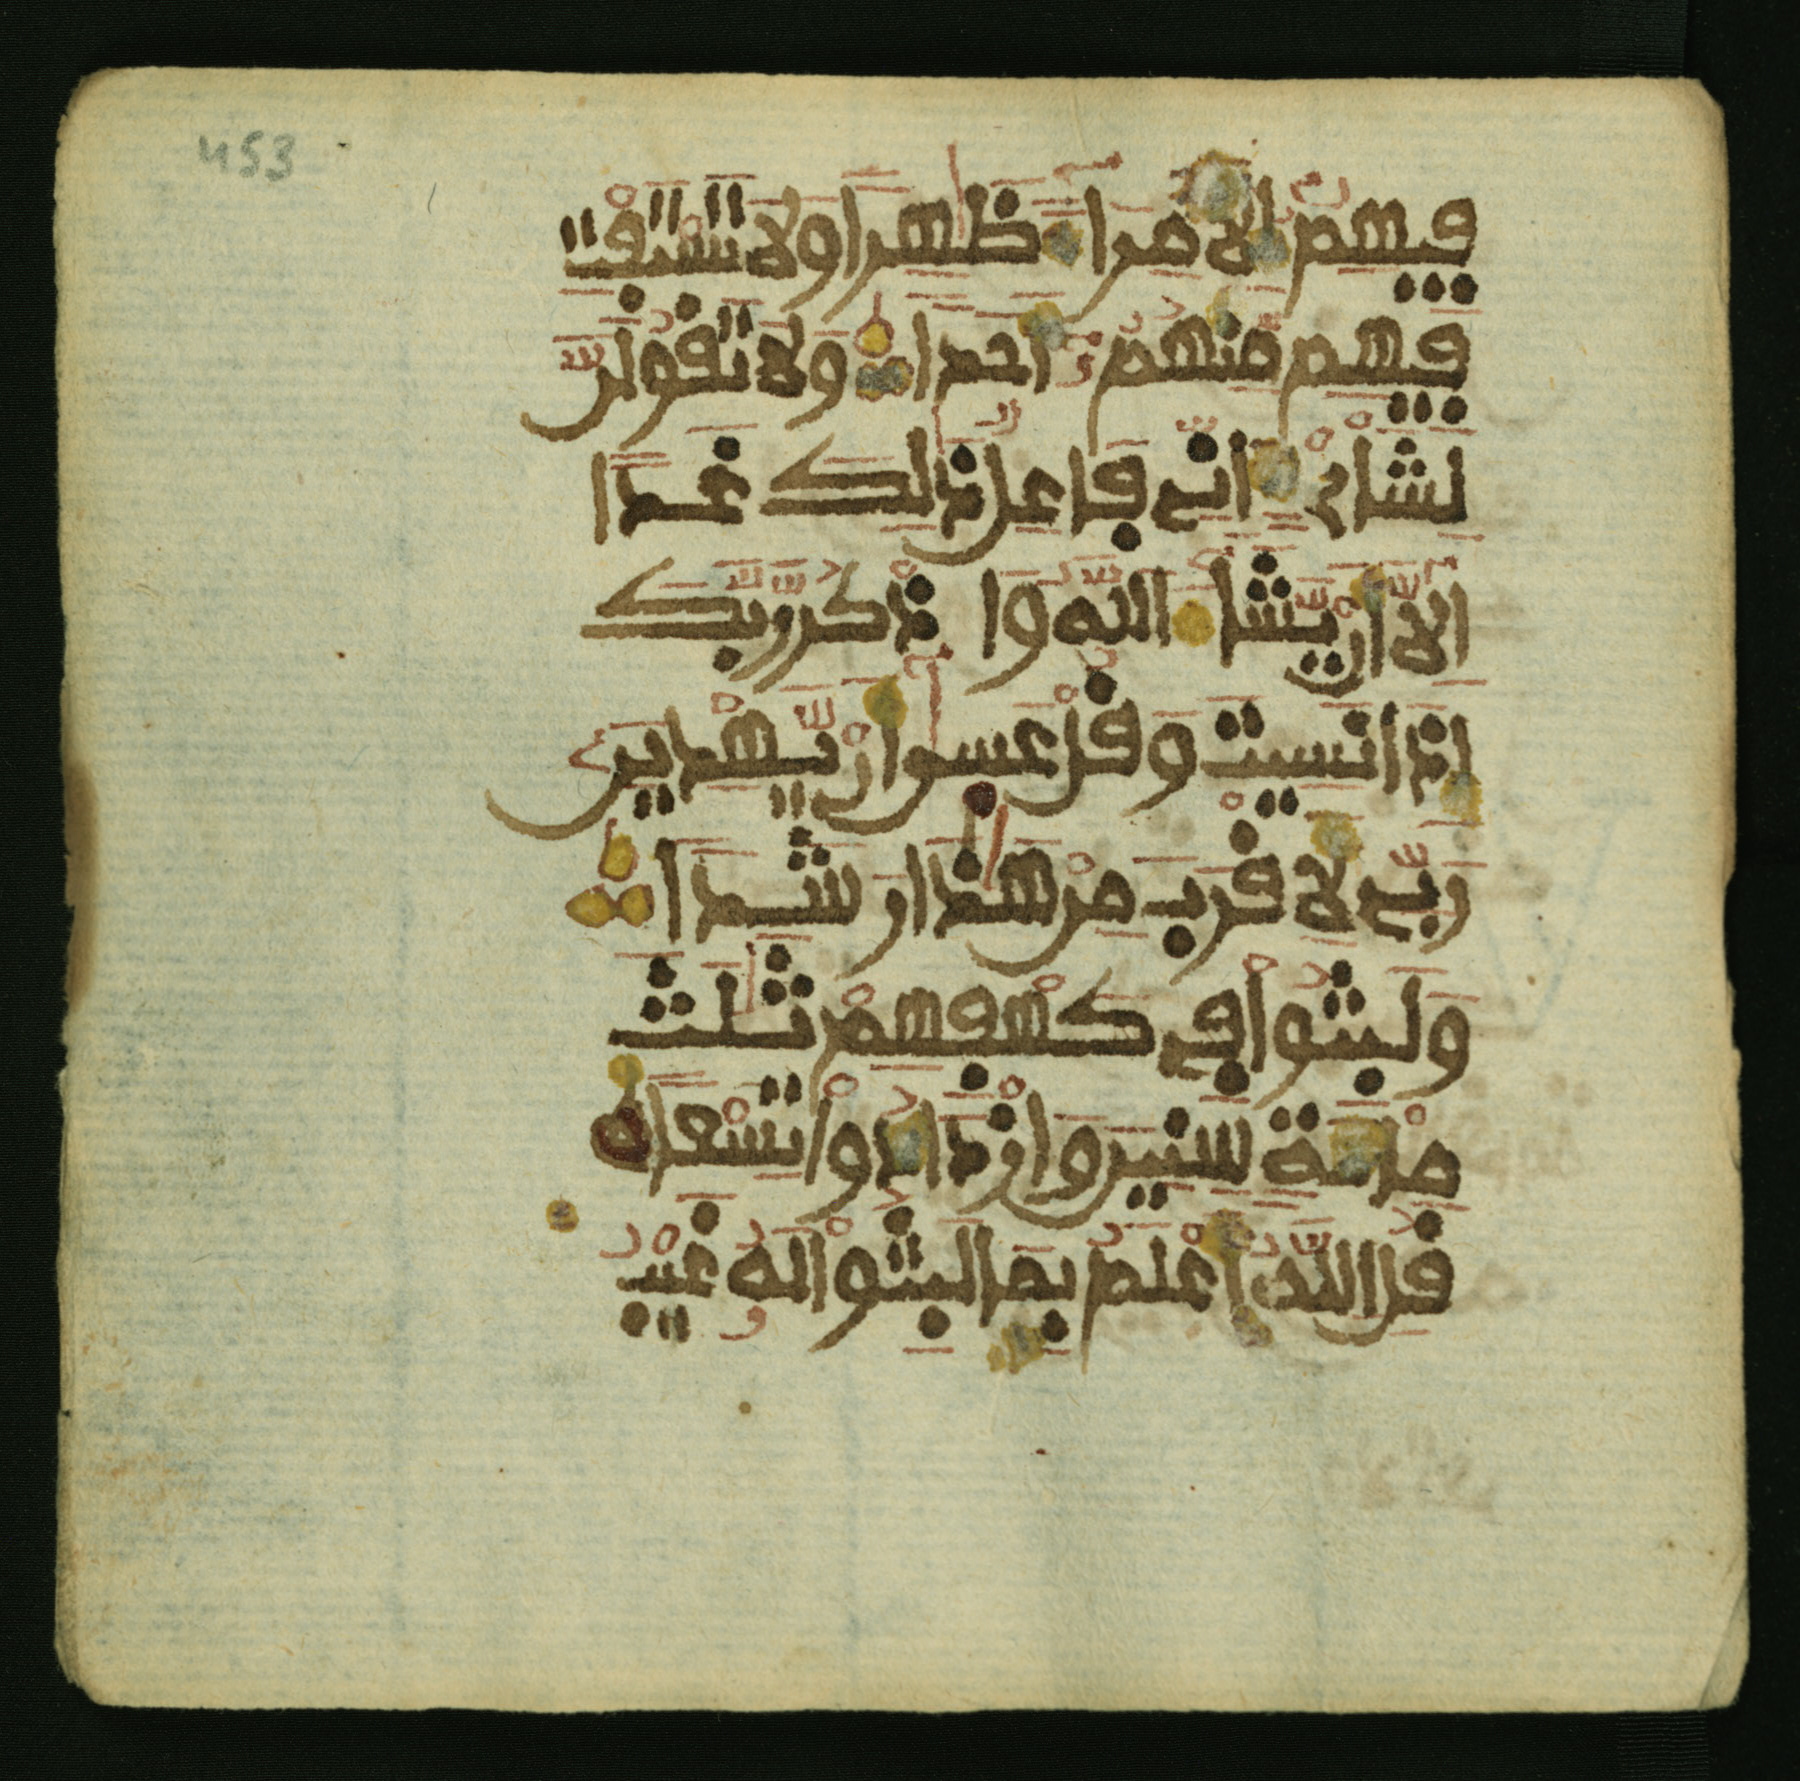 453
فيهم الا مرا ظهرا ولا تستفت
فيهم منهم احدا ولا تقولن
لشاي اني فاعل ذلك غدا
الا ان يشا الله وا ذكر ربك
اذا نسيت وقل عسى ان يهدين
ربي لا قرب من هذا ر شدا
ولبثوا في كهفهم ثلث
مائة سنين وازدادوا تسعا
قل الله اعلم بما لبثوا له غيب